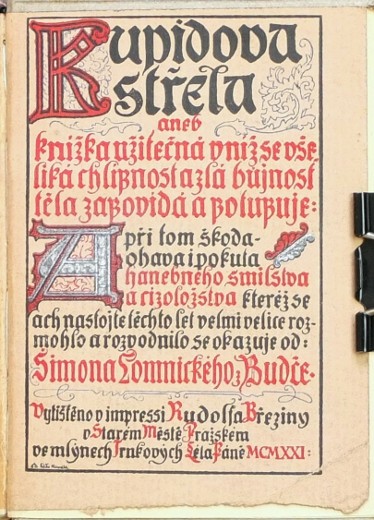 Kupidova
střela
aneb
knížka užitečná v níž se vše
liká chlipnost a zlá bujnost
těla zapovídá a potupuje:
A při tom škoda-
ohava i pokuta
hanebného smilstva
a cizoložstva kteréž se
ach nastojte těchto let velmi velice roz-
mohlo a rozvodnilo se okazuje od:
Šimona Lomnického, z Budče.
Vytištěno v impressí Rudolfa Březiny
v Starém Městě Pražském
ve mlýnech Trnkových Léta Páně MCMXXI: